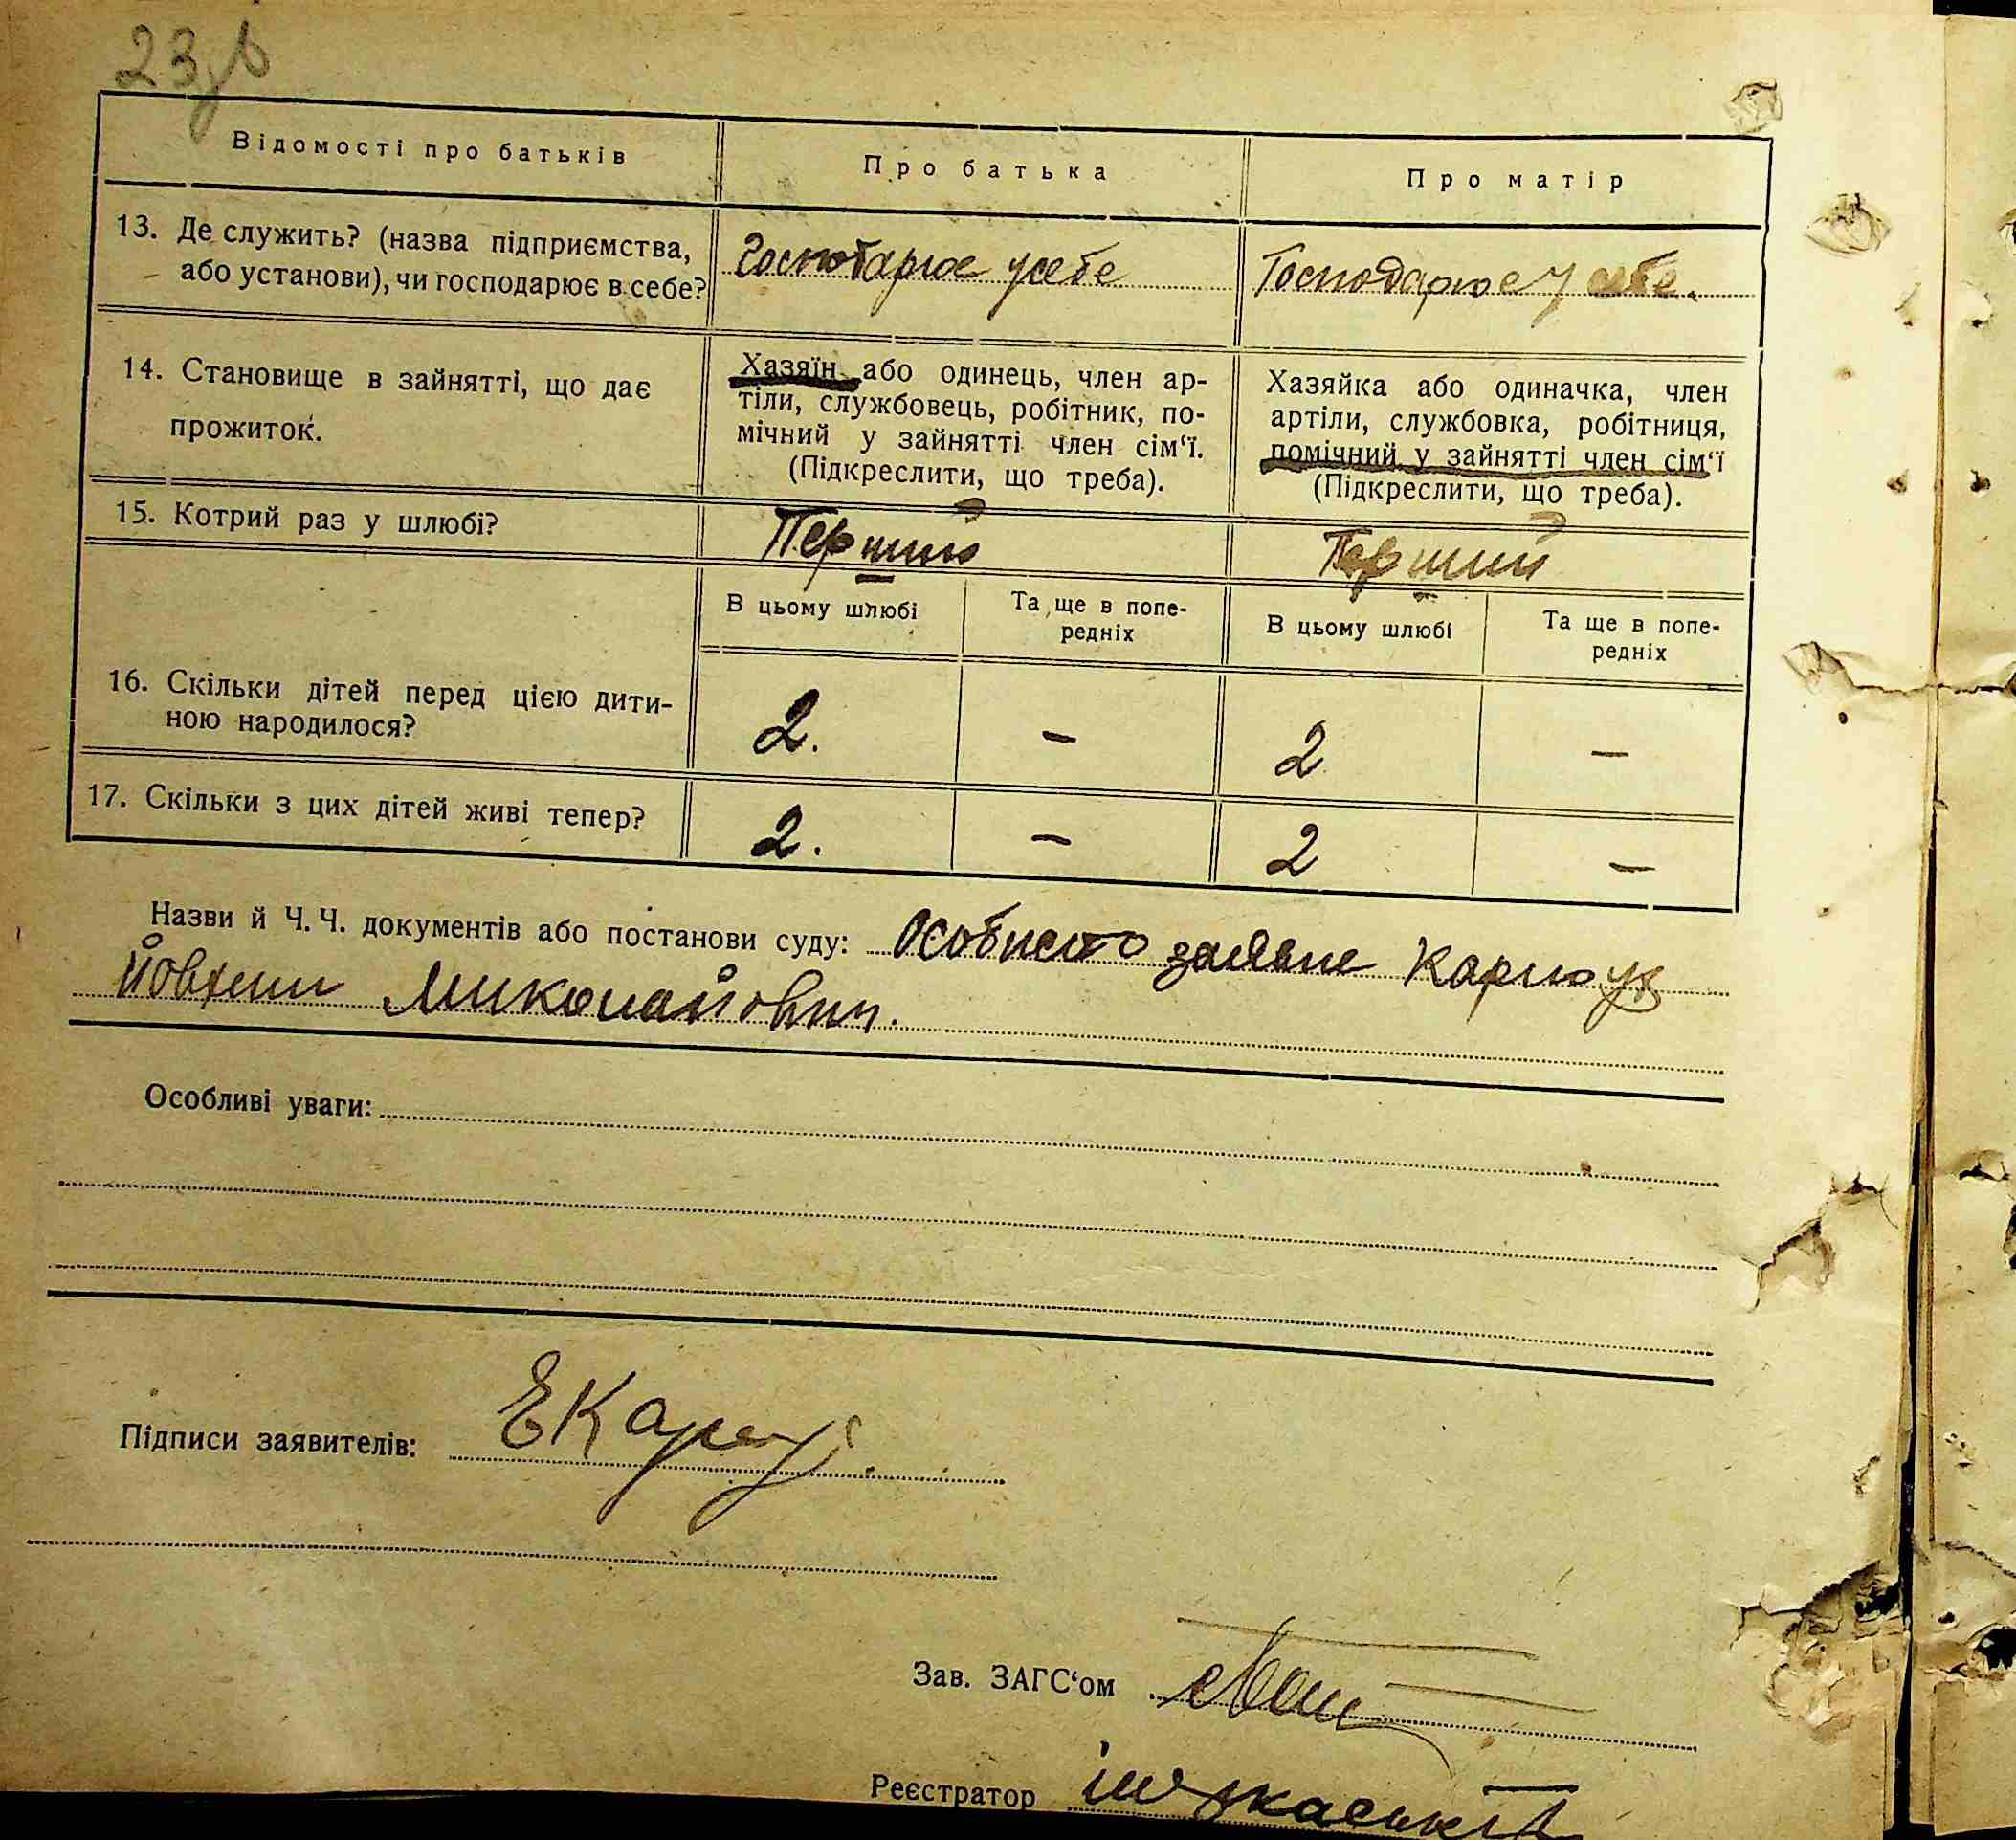 23
Відомості про батьків
Про батька
Про матір
13. Де служить? (назва підприємства,
або установи), чи господарює в себе?
Господарює у себе
Господарює у себе.
14. Становище в зайнятті, що дає
прожиток.
Хазяїн або одинець, член ар-
тіли, службовець, робітник, по-
мічний у зайнятті член сім‘ї.
(Підкреслити, що треба).
Хазяйка або одиначка, член
артіли, службовка, робітниця,
помічний у зайнятті член сім‘ї
(Підкреслити, що треба).
15. Котрий раз у шлюбі?
Перший
Перший
В цьому шлюбі
Та ще в попе-
редніх
В цьому шлюбі
Та ще в попе-
редніх
16. Скільки дітей перед цією дити-
ною народилося?
2. – 2 –
17. Скільки з цих дітей живі тепер?
2. – 2 –
Назви й Ч. Ч. документів або постанови суду: Особисто заявне
Миколайович.
Особливі уваги:
Підписи заявителів:
Зав. ЗАГС‘ом
Реєстратор